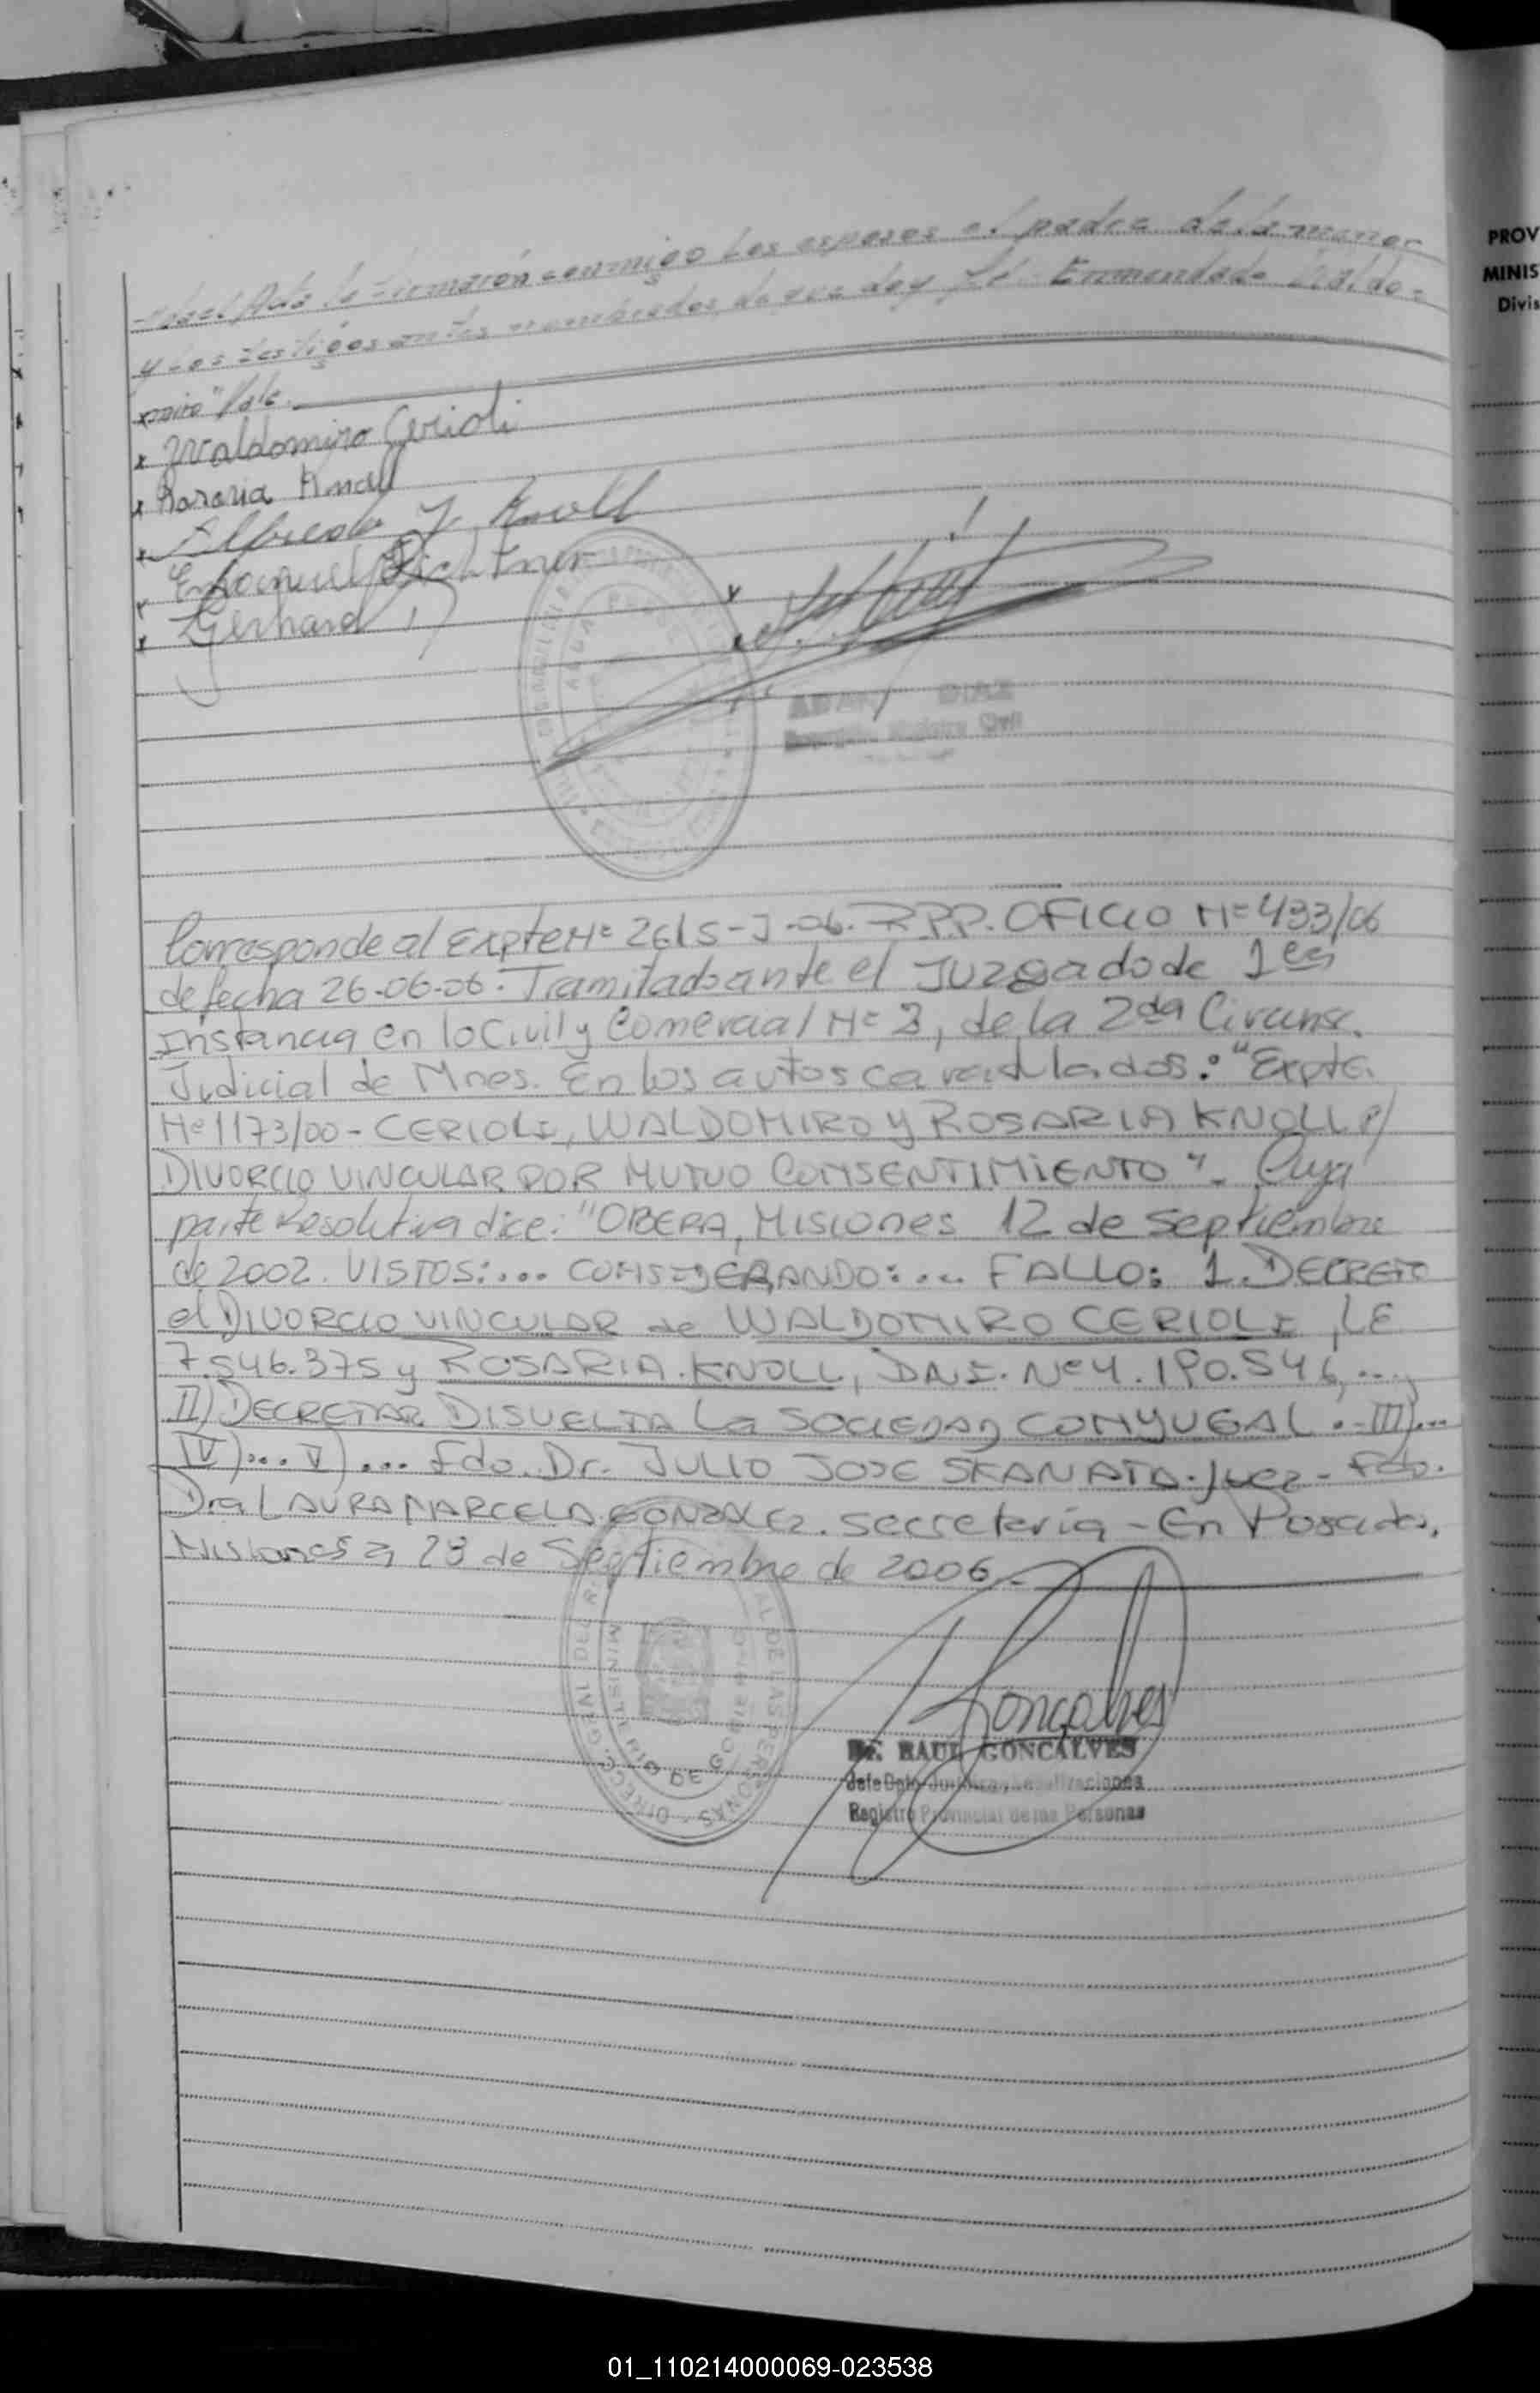 el Acta la firmarón conmigo los esposos el padre de la menor
y los testigos antes nombrados de que doy fé. Enmendado "Waldo-
miro" Vale.
x Waldomiro Cerioli
x Rosaria Knoll
x Alfredo J. Knoll
x
x Gerhard
ADAN DIAZ
Registro Civil
Corresponde al Expte Nº 2615-J-06. RPP. OFICIO Nº 433/06
de fecha 26-06-06. Tramitado ante el Juzgado de 1era
Instancia en lo Civil y Comercial Nº 3, de la 2da Circunsc.
Judicial de Mnes. En los autos caratulados: "Expte.
Nº 1173/00 - CERIOLI, WALDOMIRO y ROSARIA KNOLL s/
DIVORCIO VINCULAR POR MUTUO CONSENTIMIENTO". Cuya
parte Resolutiva dice: "OBERA, Misiones 12 de septiembre
de 2002. VISTOS:... CONSIDERANDO:... FALLO: 1. DECRETO
el DIVORCIO VINCULAR de WALDOMIRO CERIOLI, LE
7.546.375 y ROSARIA KNOLL, DNI. Nº 4.190.546,...
II) DECRETAR DISUELTA La SOCIEDAD CONYUGAL.-III)...
IV)... V)... Fdo. Dr. JULIO JOSE SKANATA. Juez - Fdo.
Dra LAURA MARCELA GONZALEZ. secretaria - En Posadas,
Misiones a 28 de Septiembre de 2006.-
DIRECC. GRAL DEL R AL DE LAS PERSONAS
MINISTERIO DE GOBIERNO
Goncalves
Dr. RAUL GONCALVES
Jefe Dpto. Jurídico y Legalizaciones
Registro Provincial de las Personas
PROV
MINIS
Divis
01_110214000069-023538